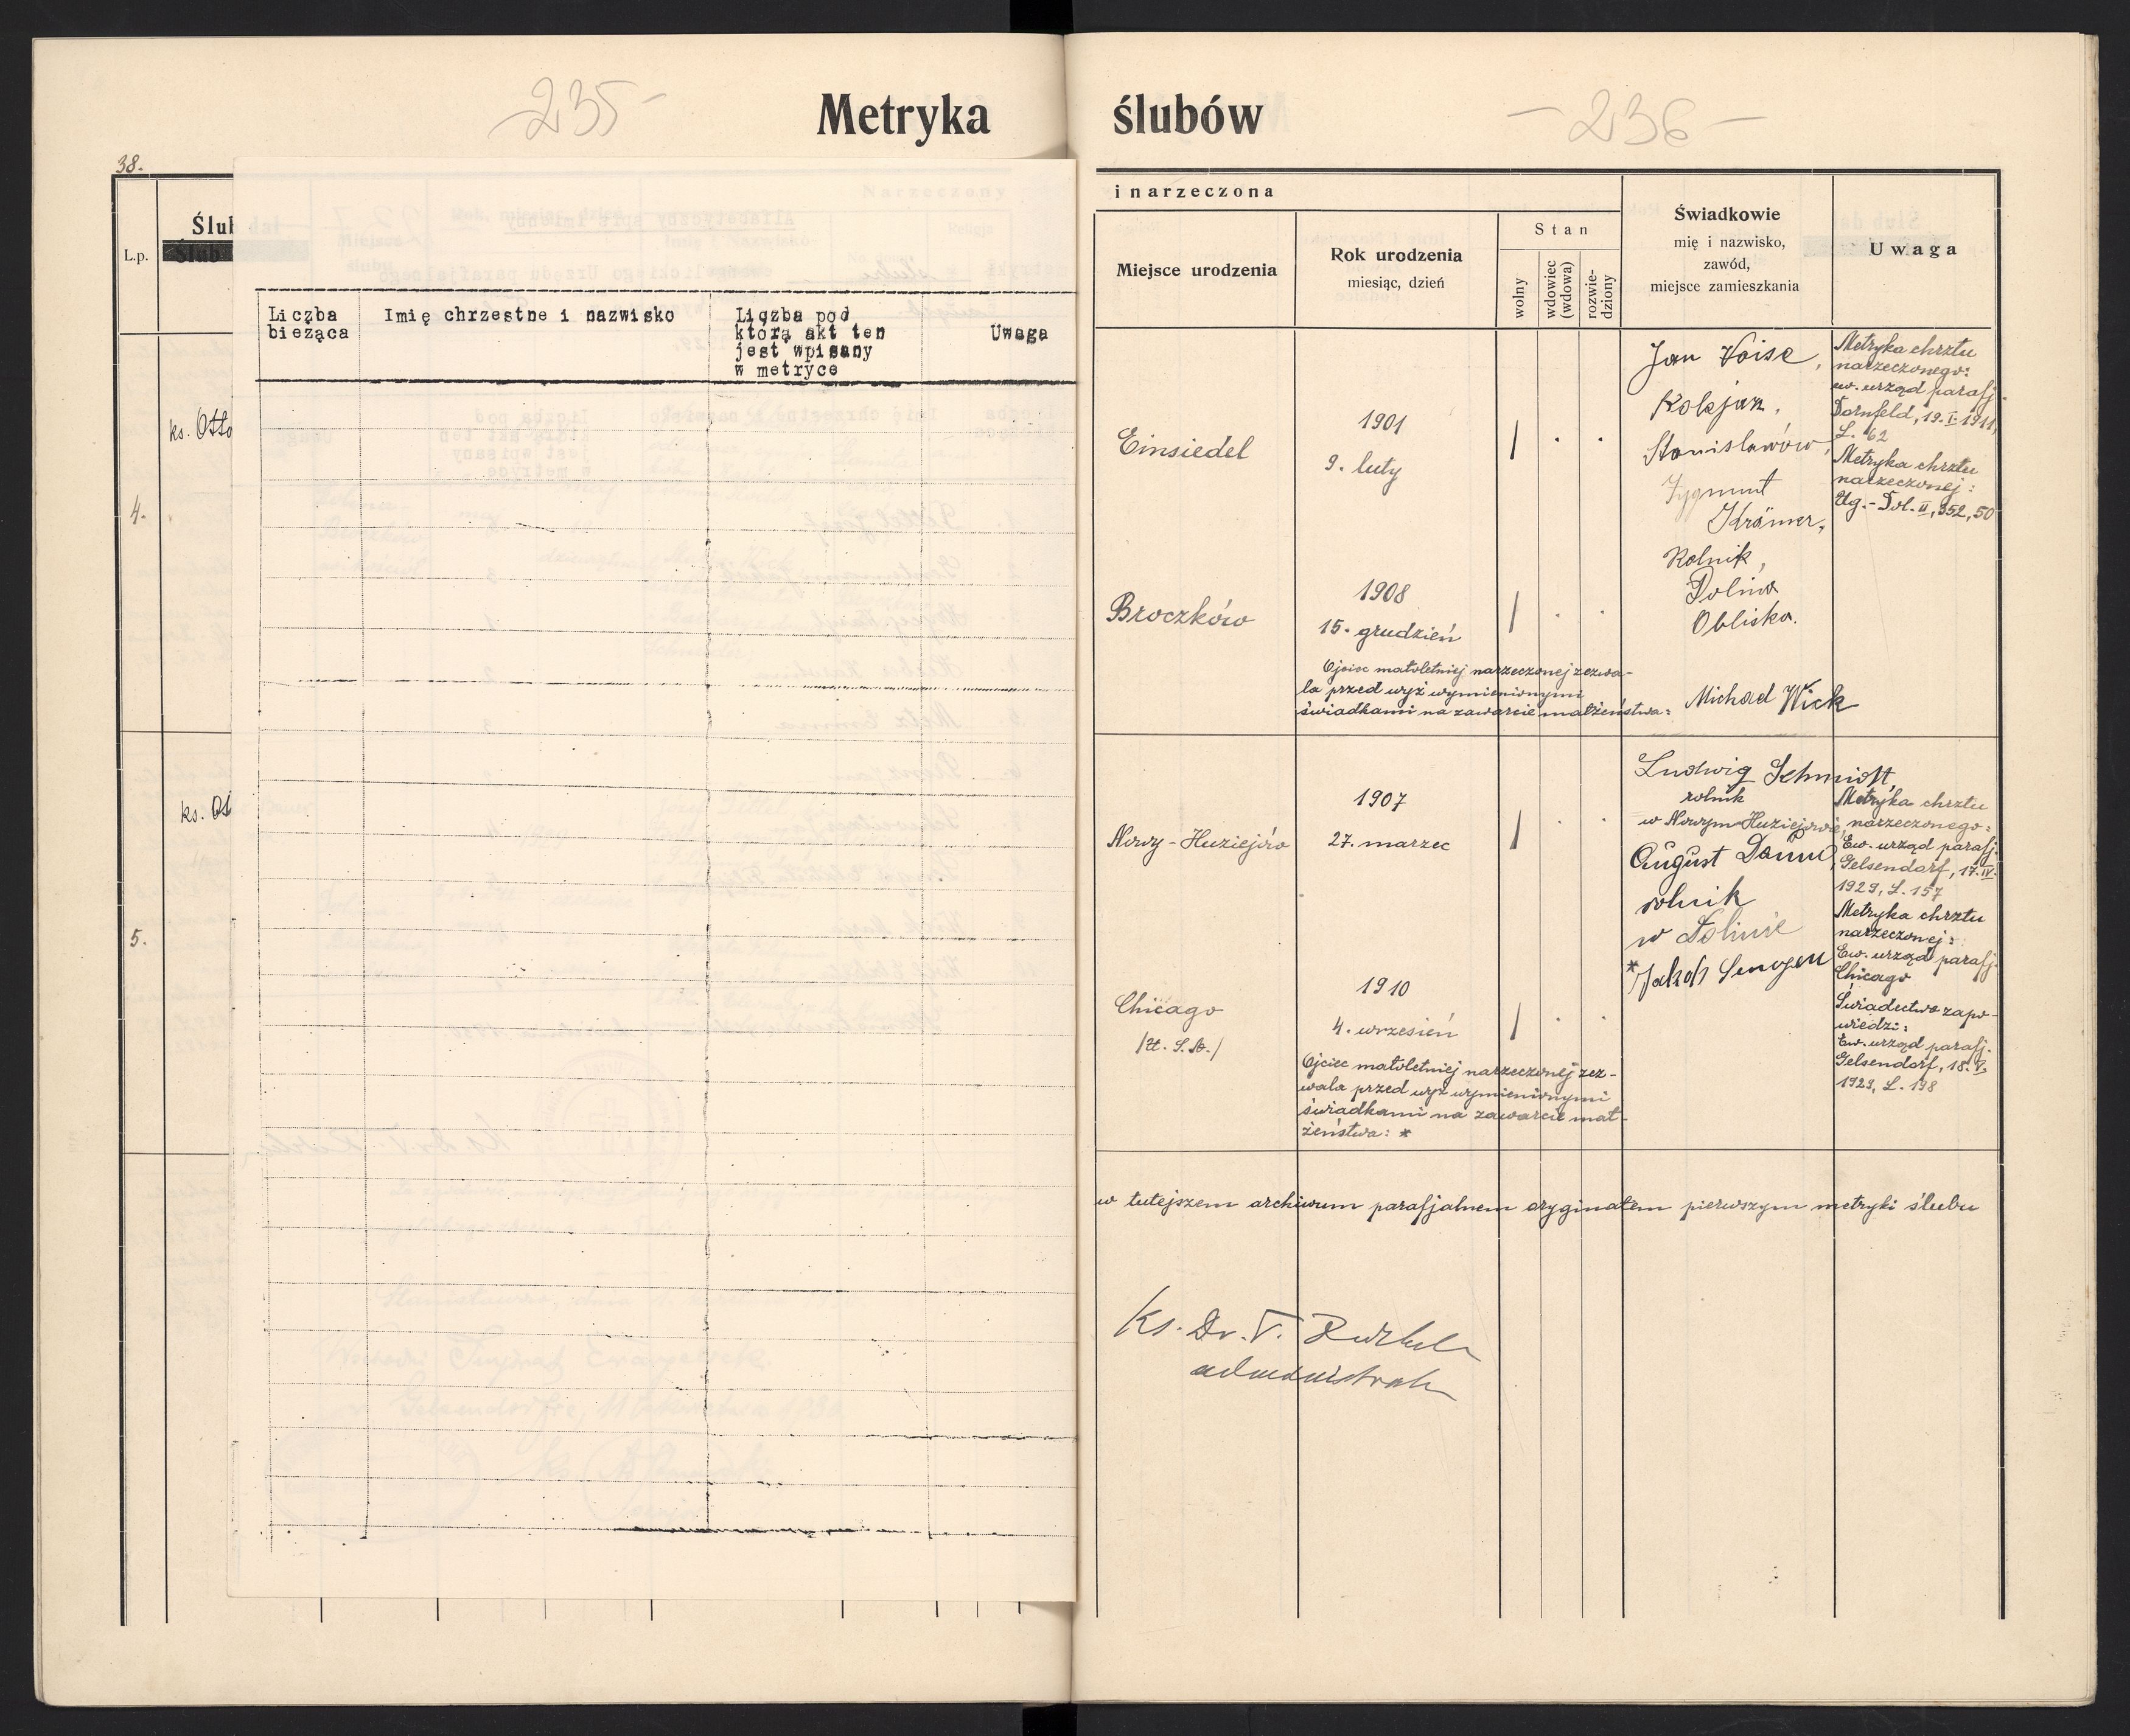 235
Metryka
38.
L.p.
Ślub
Liczba bieżąca
Imię chrzestne i nazwisko
Liczba pod
którą akt ten
jest wpisany
w metryce
Uwaga
ks. Otto
4.
5.
ślubów
- 236 -
i narzeczona
Miejsce urodzenia
Rok urodzenia
miesiąc, dzień
Stan
wolny
wdowiec
(wdowa)
rozwie-
dziony
Świadkowie
mię i nazwisko,
zawód,
miejsce zamieszkania
Uwaga
Einsiedel
1901
9. luty
Broczków
1908
15. grudzień
Ojciec małoletniej narzeczonej zezwa-
la przed wyż wymienionymi
świadkami na zawarcie małżeństwa:
Jan Voise,
Kolejarz,
Stanisławów,
Zygmunt
Krämer,
Rolnik,
Dolina
Obliska.
Michael Wick
Metryka chrztu
narzeczonego:
ew. urząd parafj.
Dornfeld, 19. I. 1911,
L. 62
Metryka chrztu
narzeczonej:
Ug.-Dol. II, 352, 50
Nowy-Huziejów
1907
27. marzec
Chicago
/U. S. A./
1910
4. wrzesień
Ojciec małoletniej narzeczonej zez-
wala przed wyż wymienionymi
świadkami na zawarcie mał-
żeństwa: *
Ludwig Schmidt,
rolnik
w Nowym Huziejowie,
August
rolnik
w Dolinie
* Jakob
Metryka chrztu
narzeczonego:
Ew. urząd parafj.
Gelsendorf, 17. IV.
1929, L. 157
Metryka chrztu
narzeczonej:
Ew. urząd parafj.
Chicago
Świadectwo zapo-
wiedzi:
Ew. urząd parafj.
Gelsendorf, 18. V.
1929, L. 198
w tutejszem archiwum parafjalnem oryginałem pierwszym metryki ślubu
ks. Dr.